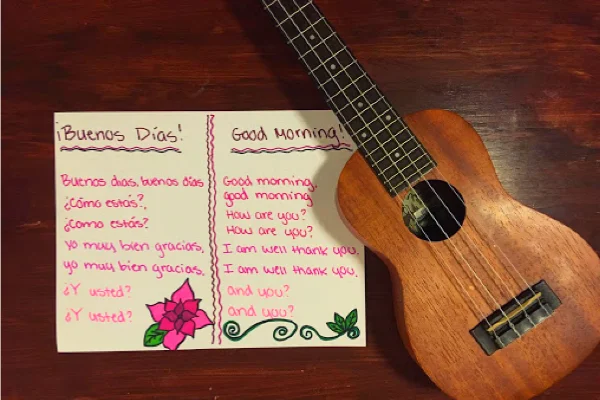 ¡Buenos Días!
Buenos dias, buenos días
¿Cómo estás?,
¿Como estás?
Yo muy bien gracias,
yo muy bien gracias.
¿Y usted?
¿Y usted?
Good Morning!
Good morning,
good morning
How are you?
How are you?
I am well thank you,
I am well thank you.
and you?
and you?